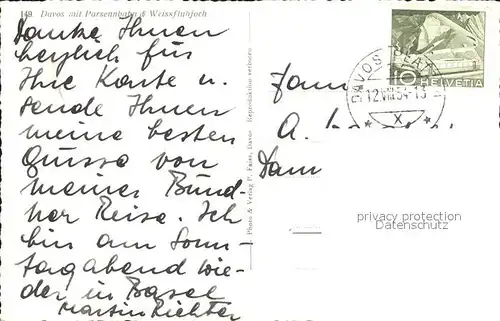 149 Davos mit Parsennbahn & Weissfluhjoch
Danke Ihnen
herzlich für
Ihre Karte u.
sende Ihnen
meine besten
Grüsse von
meiner Bünd-
ner Reise. Ich
bin am Sonn-
tagabend wie-
der in Basel
Martin Richter
Photo & Verlag P. Faiss, Davos Reproduktion verboten
10 HELVETIA
DAVOS PLATZ
12.VIII.54-13
X
Fam
A.
Dam
privacy protection
Datenschutz